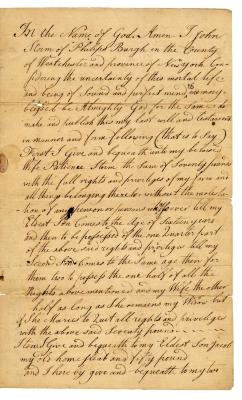 In the Name of God, Amen. I John
Storm of Philips Burgh in the County
of Westchester and province of New york Con=
sidering the uncertainty of this mortal life
and being of Sound and perfect mind & memory
be Almighty God for the Same do
make and publish this my last will and Testament
in manner and form following (that is to Say)
First I Give and bequeath unto my beloved
Wife Patience Storm the Sum of Seventy pounds
with the full rights and privileges of my farm and
all things belonging thereto without the
of any person or persons whatsoever till my
Eldest Son Comes to the age of Sixteen years
and then to be possessed of the one Quarter part
of the above said rights and privilege till my
Second Son Comes to the Same age then for
them two to possess the one half of all the
Rights above mentioned and my Wife the other
half as long as She remains my Widow but
if She Maries to Quit all rights and privilege
with the above said Seventy pound
Item I Give and bequeath to my Eldest Son
my old home and fifty pound
and I here by give and bequeath to my two